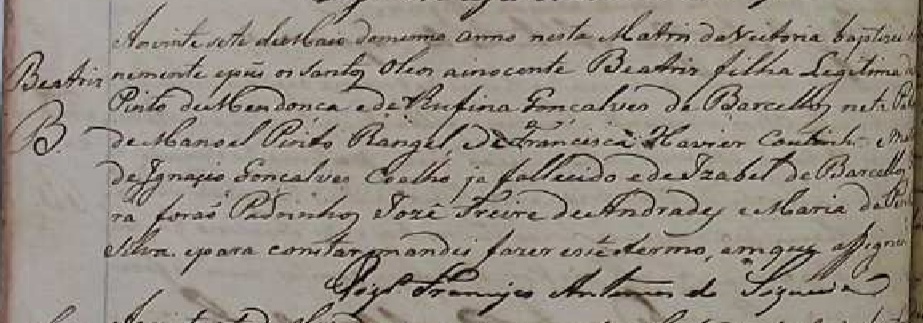 Aos vinte sete de Maio do mesmo anno nesta Matriz da Victoria baptizei
Beatriz
nemente e puz os Santos Oleos a inocente Beatriz filha Legitima de
Pinto de Mendonca e de Rufina Gonçalves de Barcellos neta Pat
B.
de Manoel Pinto Rangel e de Francisca Xavier Coutinho e Mat
de Ignacio Gonçalves Coelho ja fallecido e de Izabel de Barcellos
ra foraõ Padrinhos Jozé Freire de Andrades e Maria da
Silva. e para constar mandei fazer este termo, em que assignei
Francisco Antunes de Siqueira